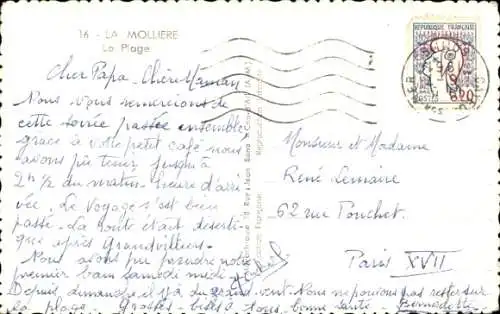 16 - LA MOLLIERE
La Plage
Cher Papa - Chère Maman
Nous vous remercions de
cette soirée passée ensemble
grace à votre petit café nous
avons pu tenir jusqu'à
2h 1/2 du matin - heure d'arri
vée. Le Voyage s'est bien
passé - La route était déserti-
que après Grandvilliers -
Nous avons pu prendre notre
premier bain samedi midi
Depuis dimanche, il y a du grand vent. Nous ne pouvons pas rester sur
la plage Grosses bises à tous. bonne santé Bernadette
REPUBLIQUE FRANÇAISE
0,20
POSTES
Monsieur et Madame
René Lemaire
62 rue Pouchet
Paris XVII